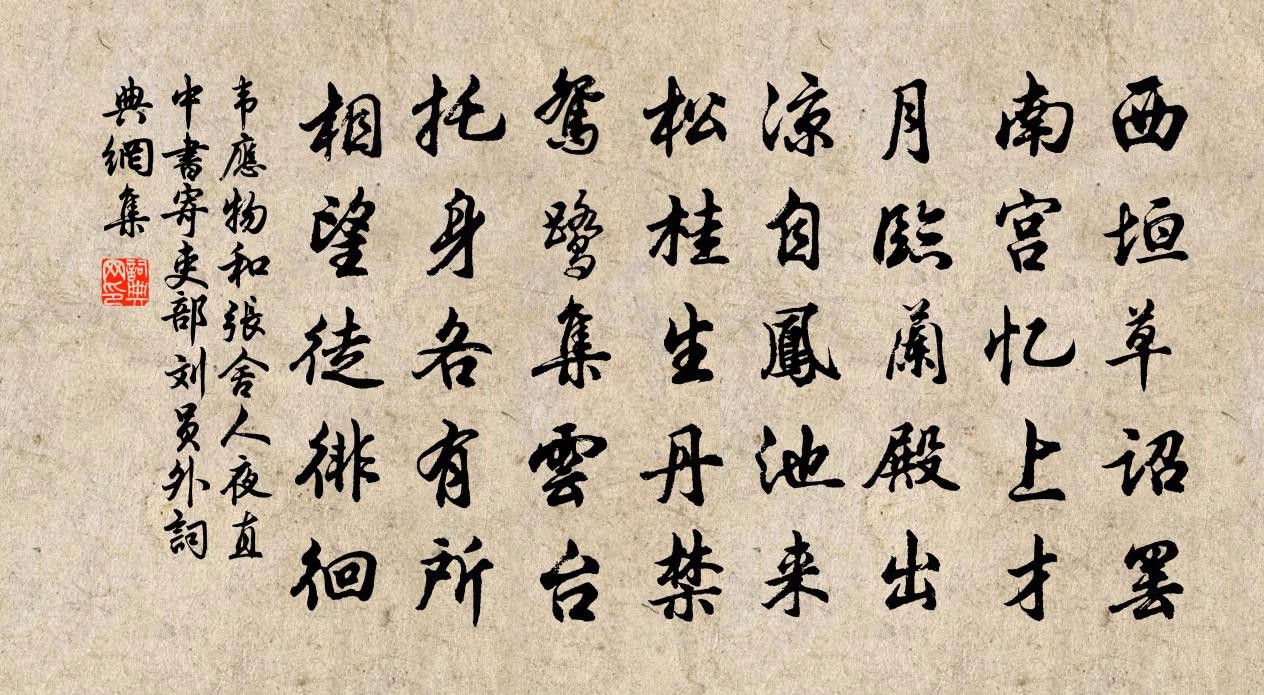 西垣草诏罢
南宫忆上才
月臨蘭殿出
凉自鳳池来
松桂生丹禁
鴛鹭集雲台
托身各有所
相望徒徘徊
韦應物和張舍人夜直
中書寄吏部刘員外詞
典網集
詞典网印